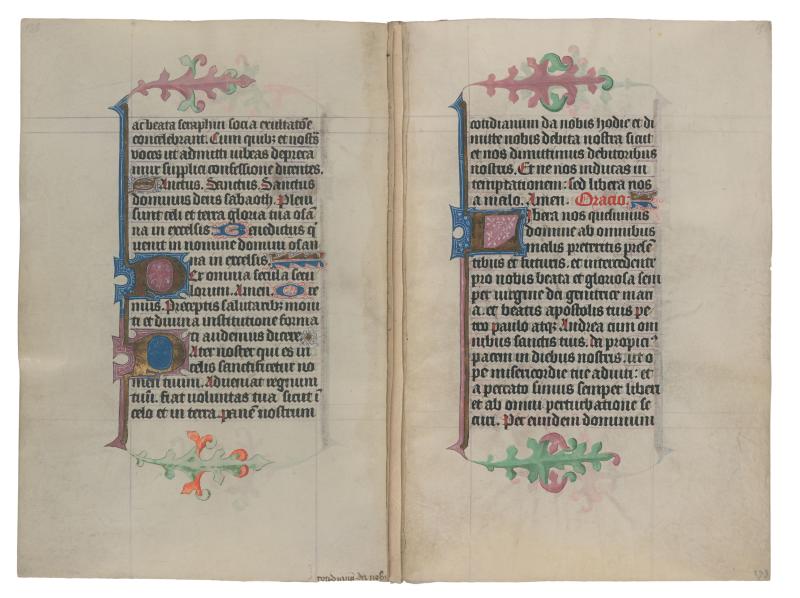 ac beata seraphin socia exultatōe
concelebrant. Cum quibꝫ et nostras
voces ut admitti iubeas depreca
mur supplici confessione dicentes.
Sanctus. Sanctus. Sanctus
dominus deus sabaoth. Pleni
sunt celi et terra gloria tua osā
na in excelsis. Benedictus q
uenit in nomine domini osan
na in excelsis.
Per omnia secula secu
lorum. Amen. Ore
mus. Preceptis salutaribꝫ moni
ti et diuina institutione forma
ti audemus dicere
Pater noster qui es in
celis sanctificetur no
men tuum. Adueniat regnum
tuū. fiat voluntas tua sicut ī
celo et in terra. panē nostrum
cotidianū da nob
cotidianum da nobis hodie et di
mitte nobis debita nostra sicut
et nos dimittimus debitoribus
nostris. Et ne nos inducas in
temptationem: sed libera nos
a malo. Amen. Oracio.
Libera nos quesumus
domine ab omnibus
malis preteritis presē
tibus et futuris. et intercedente
pro nobis beata et gloriosa sem
per uirgine dei genitrice mari
a. et beatis apostolis tuis pe
tro paulo atqꝫ Andrea cum om
nibus sanctis tuis. da propici⁹
pacem in diebus nostris. ut o
pe misericordie tue adiuti: et
a peccato simus semper liberi
et ab omni perturbatione se
curi. Per eundem dominum